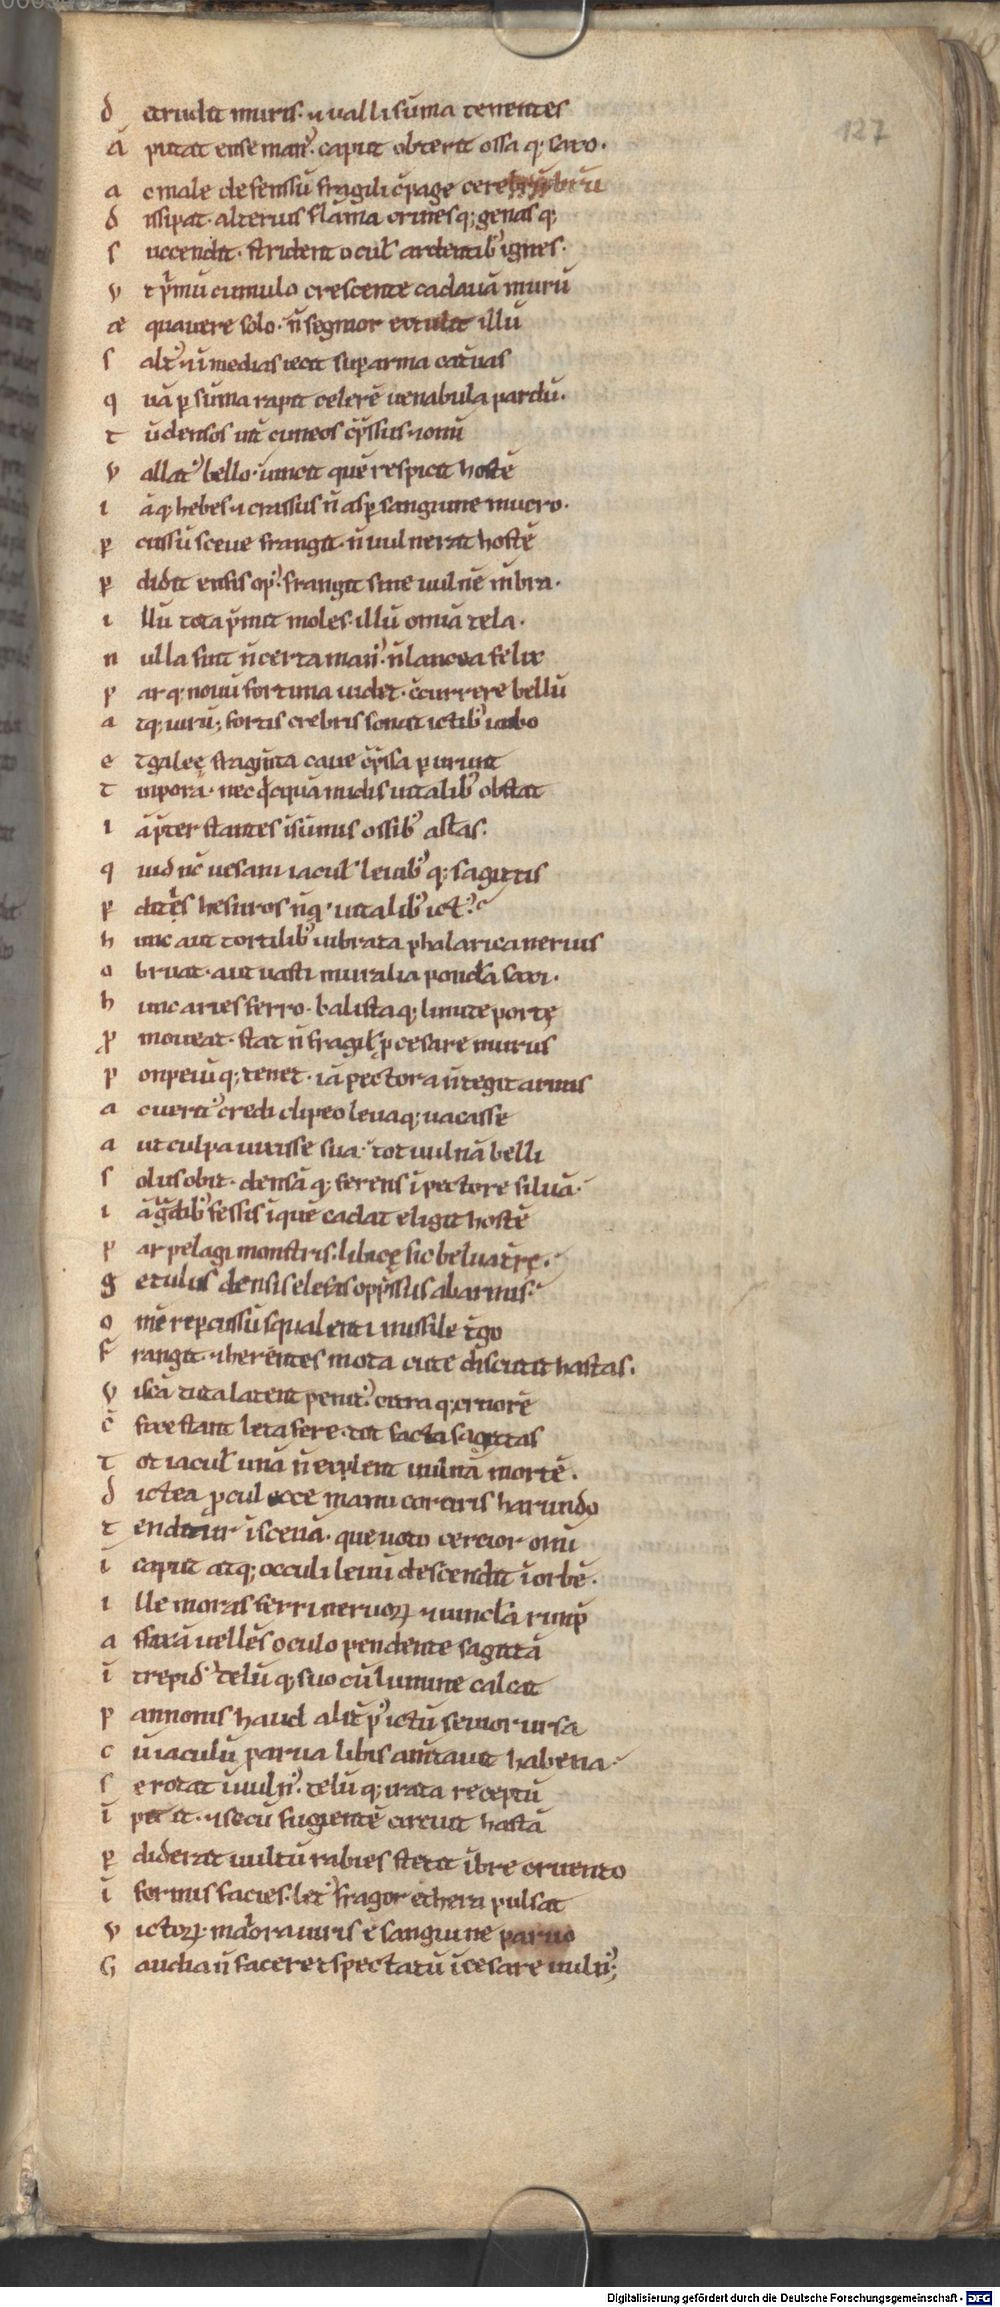 127
d etrudit muris· ⁊ ualli sūma tenentes
ā putat ense man᷒· caput obterit ossa q; saxo·
a c male defensū fragili cp̄age cerebrū
d issipat· alterius flāma crines q; genas q;
s uccendit· strident ocul᷒ ardentib᷒ ignes·
v t p̄mū cumulo crescente cadauā murū
æ quauere solo· n̄ segnior extulit illū
s alt᷒ ⁊ ī medias iecit sup arma cat̄uas
q uā ꝑ sūma rapit celerē uenabula pardū·
t ū densos int̄ cuneos cp̄ssus ⁊ om̄i
v allat᷒ bello· uincit quē respicit hostē
i āq; hebes ⁊ crassus n̄ asꝑ sanguine mucro·
ꝑ cussū sceue frangit· n̄ uulnerat hostē
ꝑ didit ensis op᷒· frangit sine uulnē mēbra·
i llū tota p̄mit moles· illū omīa tela·
n ulla fuit n̄ certa man᷒· n̄ lancea felix
p arq; nouū fortuna uidet· c̄currere bellū
a tq; uirū; fortis crebris sonat ictib᷒ umbo
e t galeę fragmīta caue cp̄ssa ꝑurunt
t inpora· nec q̇cquā nudis uitalib᷒ obstat
i ā p̄ter stantes ī sūmis ossib᷒ astas·
q uid nc̄ uesani iacul᷒ leuib᷒ q; sagittis
ꝑ ditis hesuros nū̄q᷒ uitalib᷒ ict᷒·
h unc aut tortilib᷒ uibrata phalarica neruis
o bruat· aut uasti muralia pondā saxi·
h unc aries ferro· balistaq; limite portę
ꝓ moueat· stat n̄ fragil᷒ p̄ cesare murus
p onpeiū q; tenet· iā pectora n̄ tegit armis
a c uerit᷒ credi clipeo leuaq; uacasse
a ut culpa uixisse sua· tot uulnā belli
s olus obit· densā q; ferens ī pectore siluā·
i ā g̊dib᷒ fessis ī quē cadat eligit hostē
p ar pelagi monstris· libicę sic belua tr̄ę·
g etulus densis elefas opp̄ssus ab armis·
o mē reꝑcussū squalenti missile t̄go
f rangit· ⁊ herentes mota cute discutit hastas·
v iscā tuta latent penit᷒· citra q; cruorē
c̄ fixe stant leta fere· tot facta sagittas
t ot iacul᷒ unā n̄ explent uulnā mortē·
d ictea ꝓcul ecce manu cortiris harundo
t enditur ī sceuā· que uoto certior omī
ī caput atq; occuli leuū descendit ī orbē·
i lle moras ferri neruoꝝ ⁊ uinclā rump̄
a ffixā uellēs oculo pendente sagittā
ī trepid᷒ telū q; suo cū lumine calcat
p annonis haud alit̄ p᷒ ictū seuior ursa
c ū iaculū parua libis am̄tauit habena·
s e rotat ī uuln᷒· telū q; irata receptū
ī petit· ⁊ secū fugientē circuit hastā
ꝑ diderat uultū rabies stetit ībre cruento
ī formis facies· let᷒ fragor ethera pulsat
v ictoꝝ· maiora uiris e sanguine paruo
g audia n̄ faceret spectatū ī cesare uuln᷒;
Digitalisierung gefördert durch die Deutsche Forschungsgemeinschaft - DFG